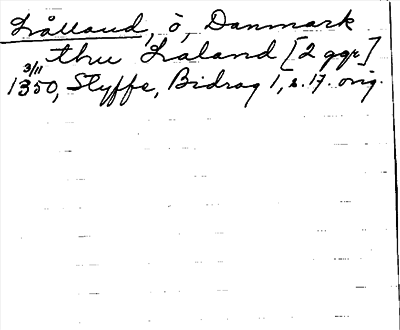 Lålland, ö, Danmark
thru Laland [2 ggr]
3/11
1350, Styffe, Bidrag 1, s. 17. orig.